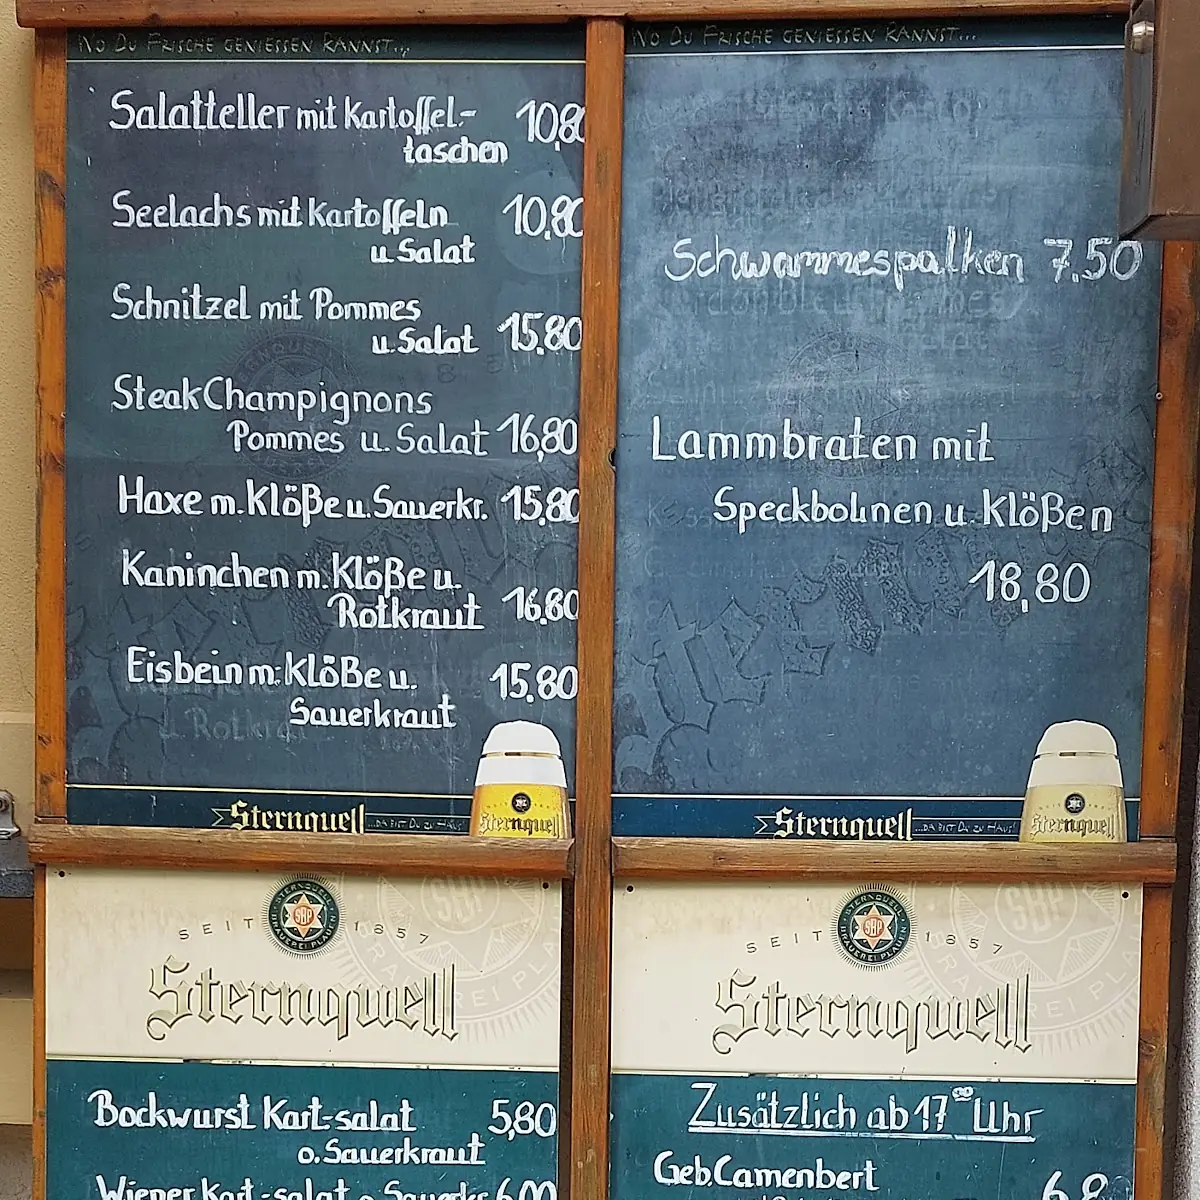 WO DU FRISCHE GENIESSEN KANNST...
Salatteller mit Kartoffel- 10,80
taschen
Seelachs mit Kartoffeln 10,80
u. Salat
Schnitzel mit Pommes
u. Salat 15,80
Steak Champignons
Pommes u. Salat 16,80
Haxe m. Klöße u. Sauerkr. 15,80
Kaninchen m. Klöße u.
Rotkraut 16,80
Eisbein m. Klöße u. 15,80
Sauerkraut
Sternquell ...DA BIST DU ZU HAUS!
Sternquell
WO DU FRISCHE GENIESSEN KANNST...
Schwammespalken 7.50
Lammbraten mit
Speckbohnen u. Klößen
18,80
Sternquell ...DA BIST DU ZU HAUS!
Sternquell
STERNQUELL
SBP
BRAUEREI PLAUEN
SEIT 1857
Sternquell
Bockwurst Kart-salat 5,80
o. Sauerkraut
Wiener Kart-salat o. Sauerkr 6,00
STERNQUELL
SBP
BRAUEREI PLAUEN
SEIT 1857
Sternquell
Zusätzlich ab 17⁰⁰ Uhr
Geb. Camenbert